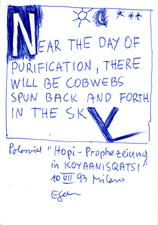 NEAR THE DAY OF
PURIFICATION, THERE
WILL BE COBWEBS
SPUN BACK AND FORTH
IN THE SKY
Polaroid "Hopi-Prophezeiung
in KOYAANISQATSI"
10 VII 93 Milano